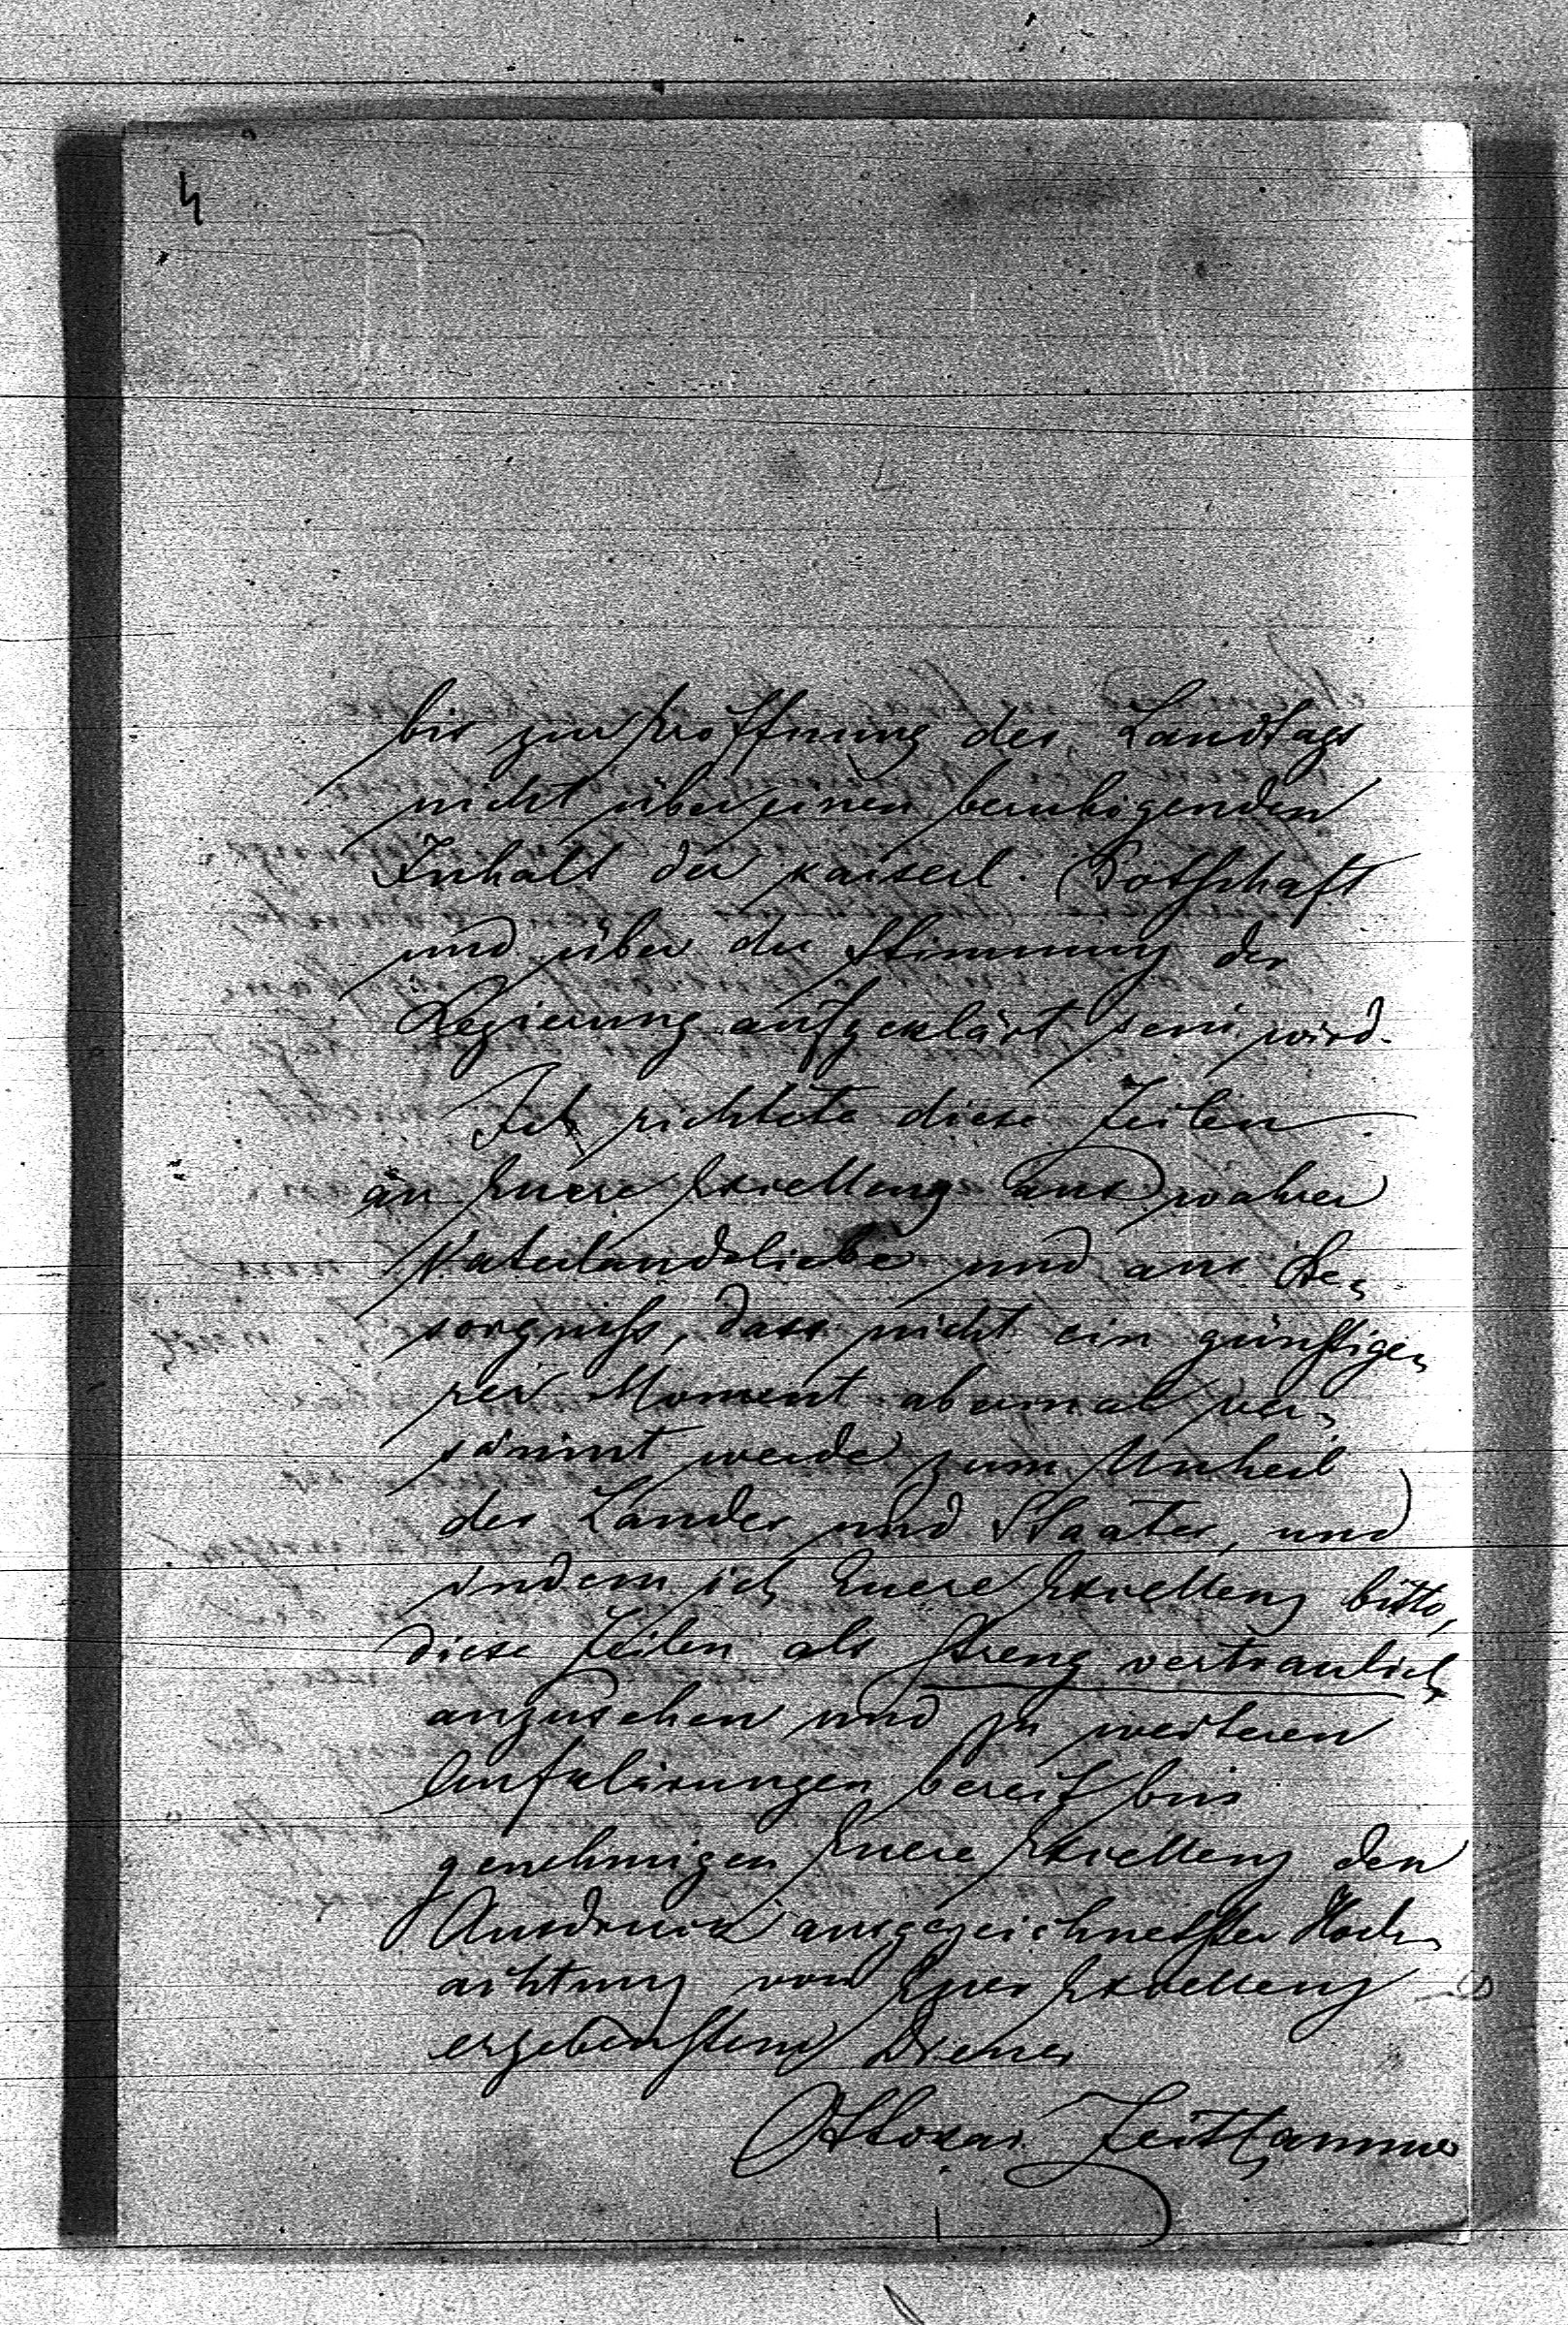 4
bis zur Eröffnung des Landtags
nicht über einen beruhigenden
Inhalt der kaiserl. Botschaft
und über die Stimmung der
Regierung aufgeklärt sein wird.
Ich richtete diese Zeilen
an Euere Excellenz aus wahrer
Vaterlandsliebe und aus Be-
sorgniss, dass nicht ein günstige-
rer Moment abermal ver-
säumt werde zum Unheil
des Landes und Staates, und
indem ich Euere Excellenz bitte,
diese Zeilen als streng vertraulich
anzusehen und zu weiteren
Aufklärungen bereit bin
genehmigen Euere Excellenz den
Ausdruck ausgezeichnetster Hoch-
achtung von Euer Excellenz
ergebenstem Diener
Ottokar Zeithammer